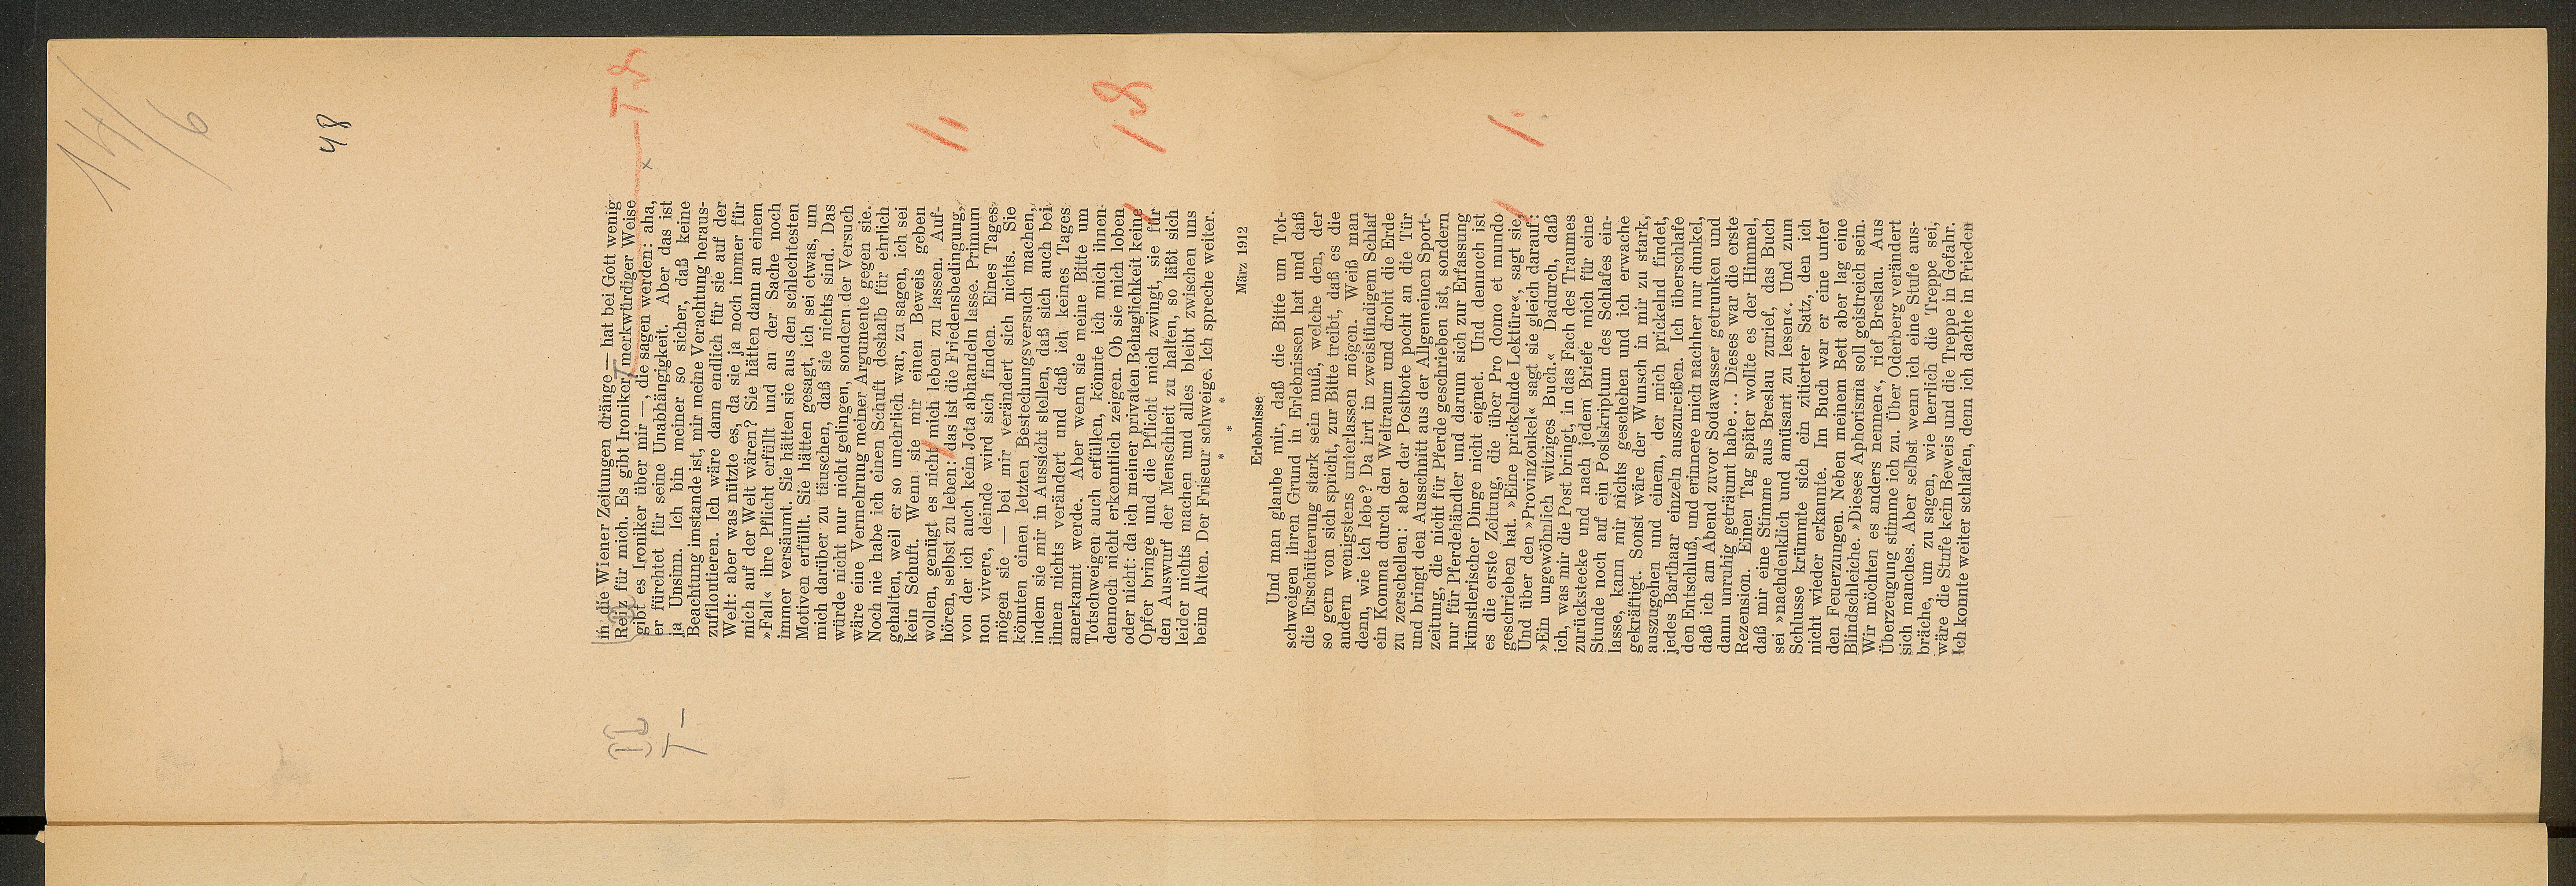 14/6
48
in die Wiener Zeitungen dränge — hat bei Gott wenig
Reiz für mich. Es gibt Ironiker, merkwürdiger Weise
gibt es Ironiker über mir —, die sagen werden: aha,
er fürchtet für seine Unabhängigkeit. Aber das ist
ja Unsinn. Ich bin meiner so sicher, daß keine
Beachtung imstande ist, mir meine Verachtung heraus-
zufiloutieren. Ich wäre dann endlich für sie auf der
Welt: aber was nützte es, da sie ja noch immer für
mich auf der Welt wären? Sie hätten dann an einem
»Fall« ihre Pflicht erfüllt und an der Sache noch
immer versäumt. Sie hätten sie aus den schlechtesten
Motiven erfüllt. Sie hätten gesagt, ich sei etwas, um
mich darüber zu täuschen, daß sie nichts sind. Das
würde nicht nur nicht gelingen, sondern der Versuch
wäre eine Vermehrung meiner Argumente gegen sie.
Noch nie habe ich einen Schuft deshalb für ehrlich
gehalten, weil er so unehrlich war, zu sagen, ich sei
kein Schuft. Wenn sie mir einen Beweis geben
wollen, genügt es nicht mich leben zu lassen. Auf-
hören, selbst zu leben: das ist die Friedensbedingung,
von der ich auch kein Jota abhandeln lasse. Primum
non vivere, deinde wird sich finden. Eines Tages
mögen sie — bei mir verändert sich nichts. Sie
könnten einen letzten Bestechungsversuch machen,
indem sie mir in Aussicht stellen, daß sich auch bei
ihnen nichts verändert und daß ich keines Tages
anerkannt werde. Aber wenn sie meine Bitte um
Totschweigen auch erfüllen, könnte ich mich ihnen
dennoch nicht erkenntlich zeigen. Ob sie mich loben
oder nicht: da ich meiner privaten Behaglichkeit keine
Opfer bringe und die Pflicht mich zwingt, sie für
den Auswurf der Menschheit zu halten, so läßt sich
leider nichts machen und alles bleibt zwischen uns
beim Alten. Der Friseur schweige. Ich spreche weiter.
* * *
März 1912
Erlebnisse
Und man glaube mir, daß die Bitte um Tot-
schweigen ihren Grund in Erlebnissen hat und daß
die Erschütterung stark sein muß, welche den, der
so gern von sich spricht, zur Bitte treibt, daß es die
andern wenigstens unterlassen mögen. Weiß man
denn, wie ich lebe? Da irrt in zweistündigem Schlaf
ein Komma durch den Weltraum und droht die Erde
zu zerschellen: aber der Postbote pocht an die Tür
und bringt den Ausschnitt aus der Allgemeinen Sport-
zeitung, die nicht für Pferde geschrieben ist, sondern
nur für Pferdehändler und darum sich zur Erfassung
künstlerischer Dinge nicht eignet. Und dennoch ist
es die erste Zeitung, die über Pro domo et mundo
geschrieben hat. »Eine prickelnde Lektüre«, sagt sie,
Und über den »Provinzonkel« sagt sie gleich darauf:
»Ein ungewöhnlich witziges Buch.« Dadurch, daß
ich, was mir die Post bringt, in das Fach des Traumes
zurückstecke und nach jedem Briefe mich für eine
Stunde noch auf ein Postskriptum des Schlafes ein-
lasse, kann mir nichts geschehen und ich erwache
gekräftigt. Sonst wäre der Wunsch in mir zu stark,
auszugehen und einem, der mich prickelnd findet,
jedes Barthaar einzeln auszureißen. Ich überschlafe
den Entschluß, und erinnere mich nachher nur dunkel,
daß ich am Abend zuvor Sodawasser getrunken und
dann unruhig geträumt habe... Dieses war die erste
Rezension. Einen Tag später wollte es der Himmel,
daß mir eine Stimme aus Breslau zurief, das Buch
sei »nachdenklich und amüsant zu lesen«. Und zum
Schlusse krümmte sich ein zitierter Satz, den ich
nicht wieder erkannte. Im Buch war er eine unter
den Feuerzungen. Neben meinem Bett aber lag eine
Blindschleiche. »Dieses Aphorisma soll geistreich sein.
Wir möchten es anders nennen«, rief Breslau. Aus
Überzeugung stimme ich zu. Über Oderberg verändert
sich manches. Aber selbst wenn ich eine Stufe aus-
bräche, um zu sagen, wie herrlich die Treppe sei,
wäre die Stufe kein Beweis und die Treppe in Gefahr.
Ich konnte weiter schlafen, denn ich dachte in Frieden